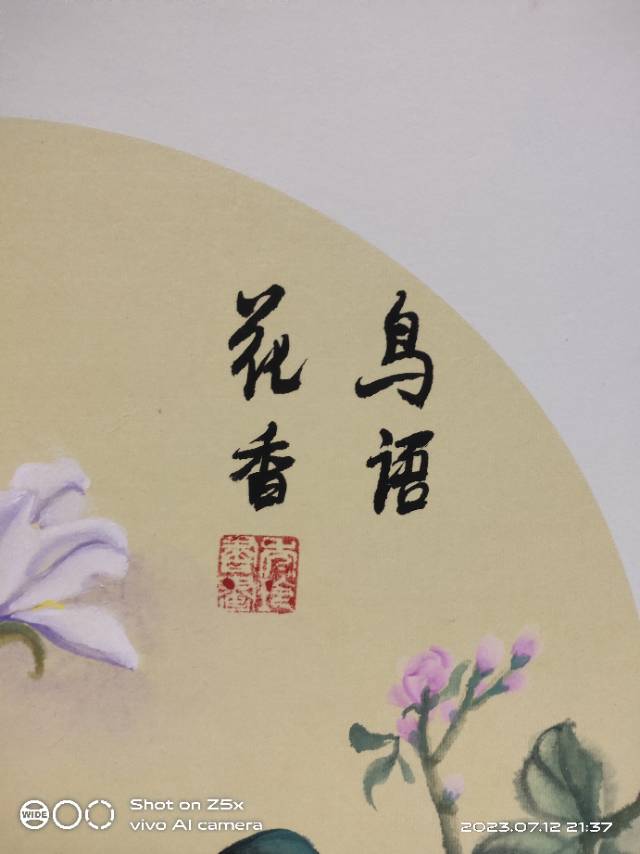 鸟语
花香
Shot on Z5x
vivo AI camera
WIDE
2023.07.12 21:37